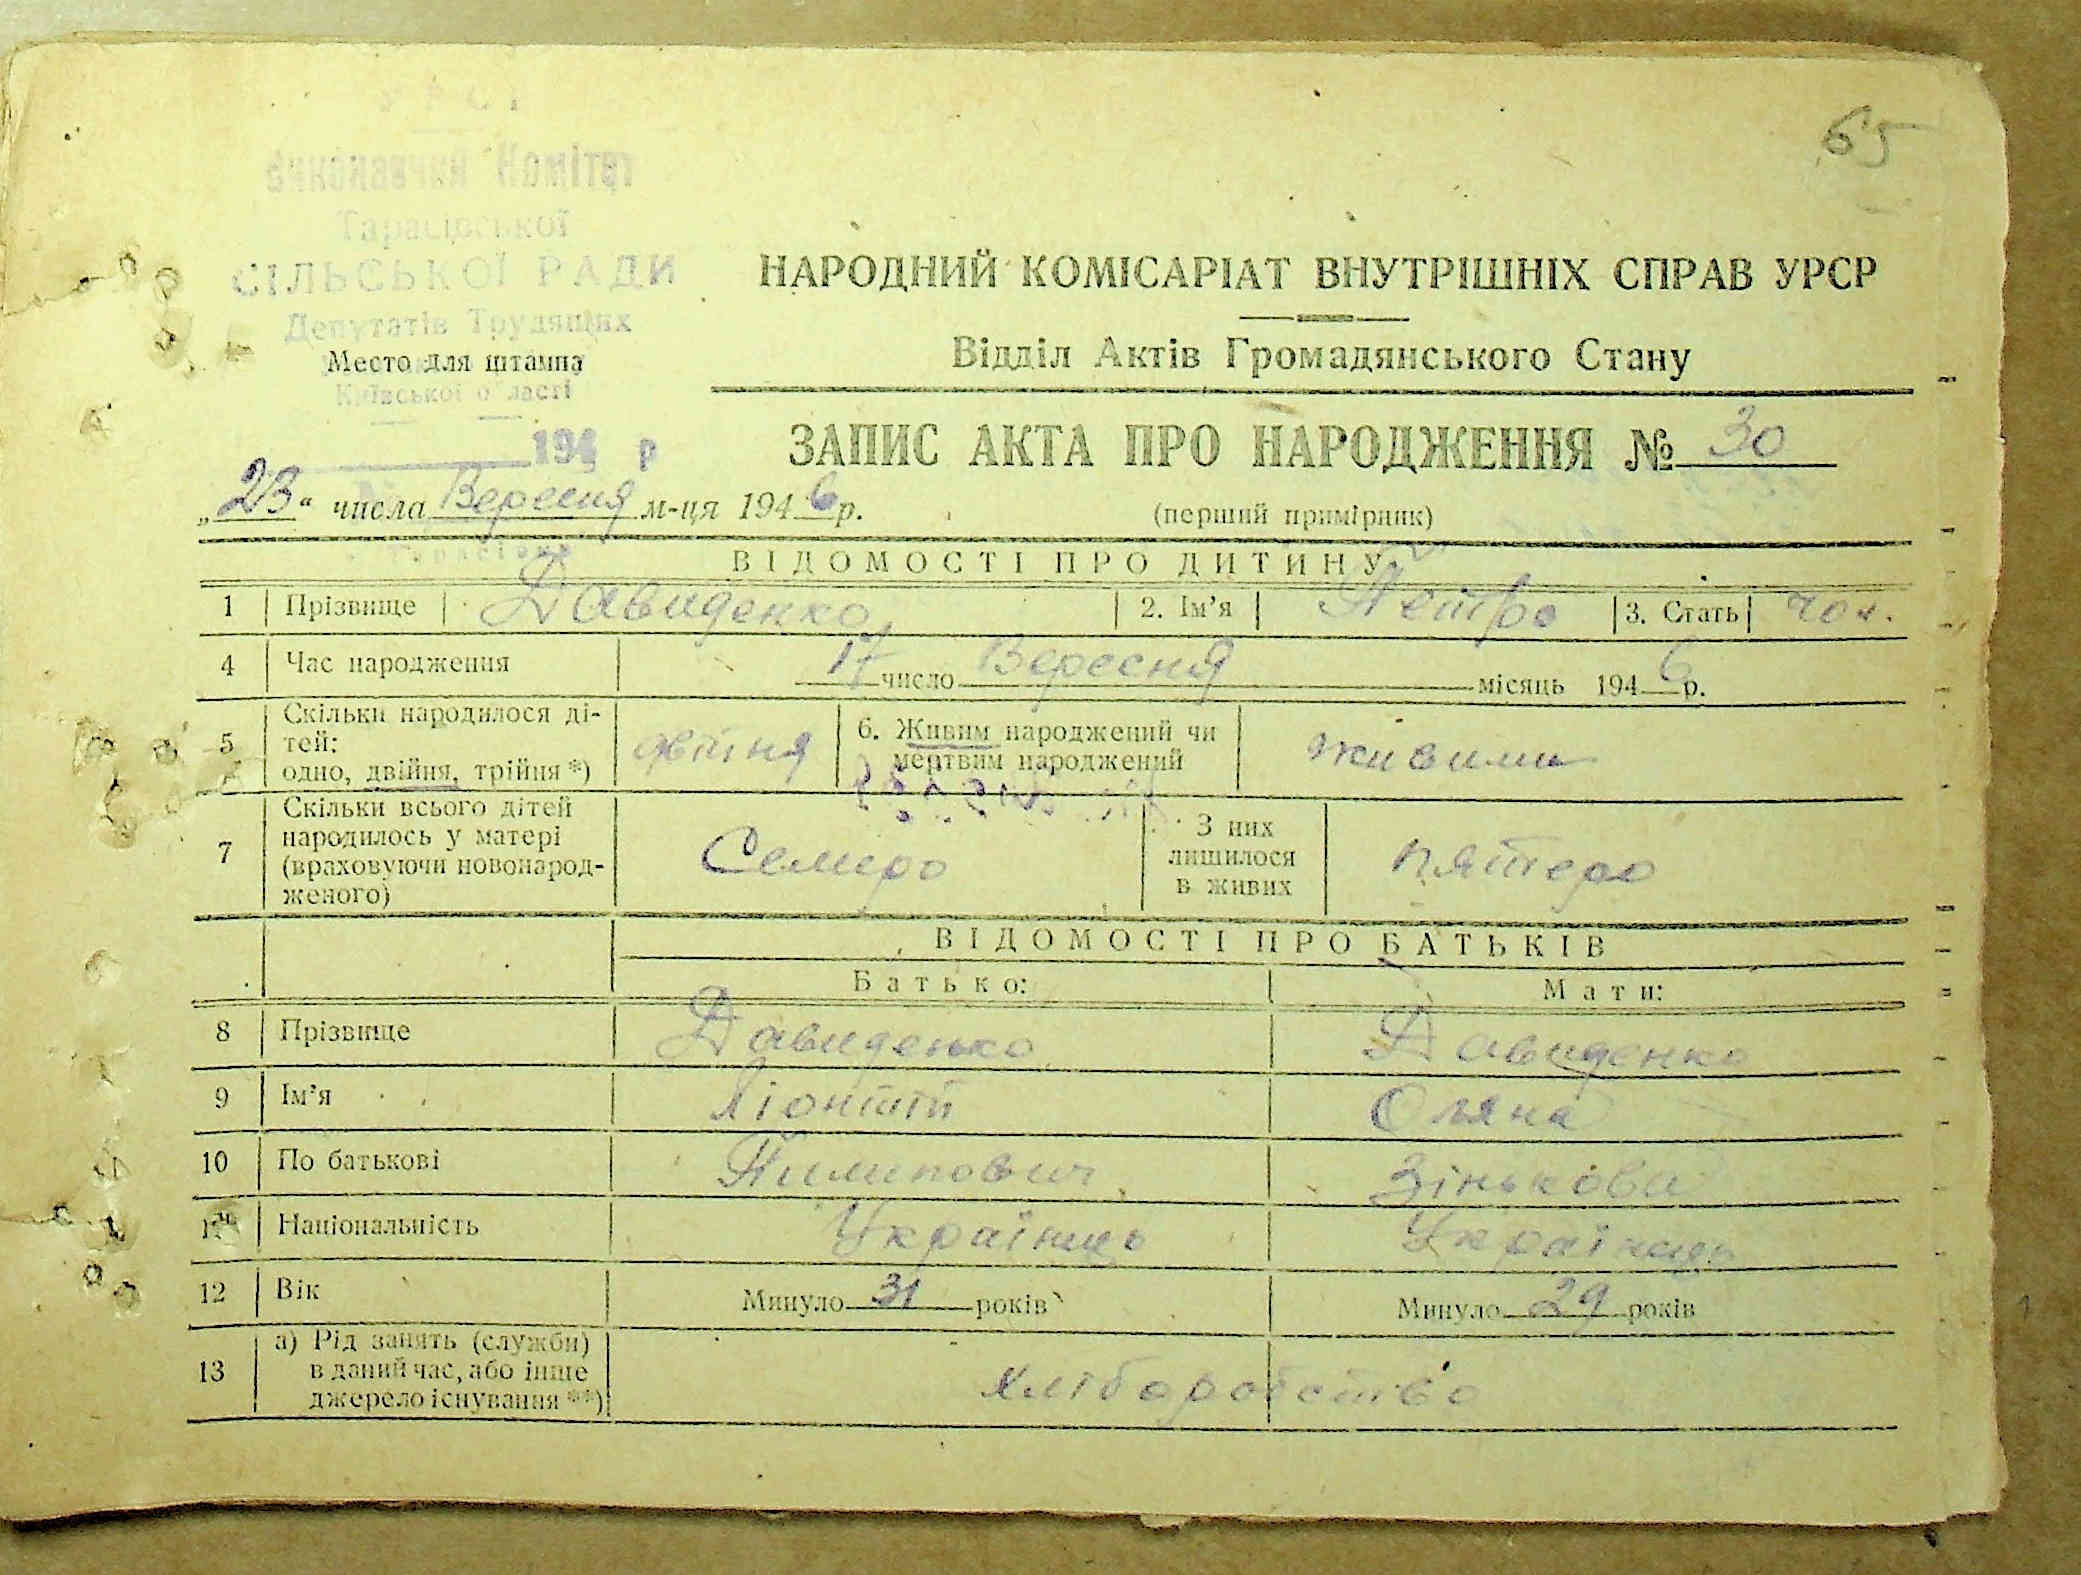 65
Виконавчий Комітет
Тарасівської
СІЛЬСЬКОЇ РАДИ
Депутатів Трудящих
Київської області
194 р
Место для штампа
НАРОДНИЙ КОМІСАРІАТ ВНУТРІШНІХ СПРАВ УРСР
Відділ Актів Громадянського Стану
ЗАПИС АКТА ПРО НАРОДЖЕННЯ № 30
„23“ числа Вересня м-ця 1946 р.
(перший примірник)
ВІДОМОСТІ ПРО ДИТИНУ
1 Прізвище Давиденко 2. Ім’я Петро 3. Стать чол.
4 Час народження 17 число Вересня місяць 1946 р.
5 Скільки народилося ді-
тей:
одно, двійня, трійня *) двійня
6. Живим народжений чи
мертвим народжений живими
7 Скільки всього дітей
народилось у матері
(враховуючи новонарод-
женого) Семеро
З них
лишилося
в живих пятеро
ВІДОМОСТІ ПРО БАТЬКІВ
Батько: Мати:
8 Прізвище Давиденко Давиденко
9 Ім’я Ліонтій Оляна
10 По батькові Пилипович Зінькова
11 Національність Українець Українець
12 Вік Минуло 31 років Минуло 29 років
13 а) Рід занять (служби)
в даний час, або інше
джерело існування **) хліборобство